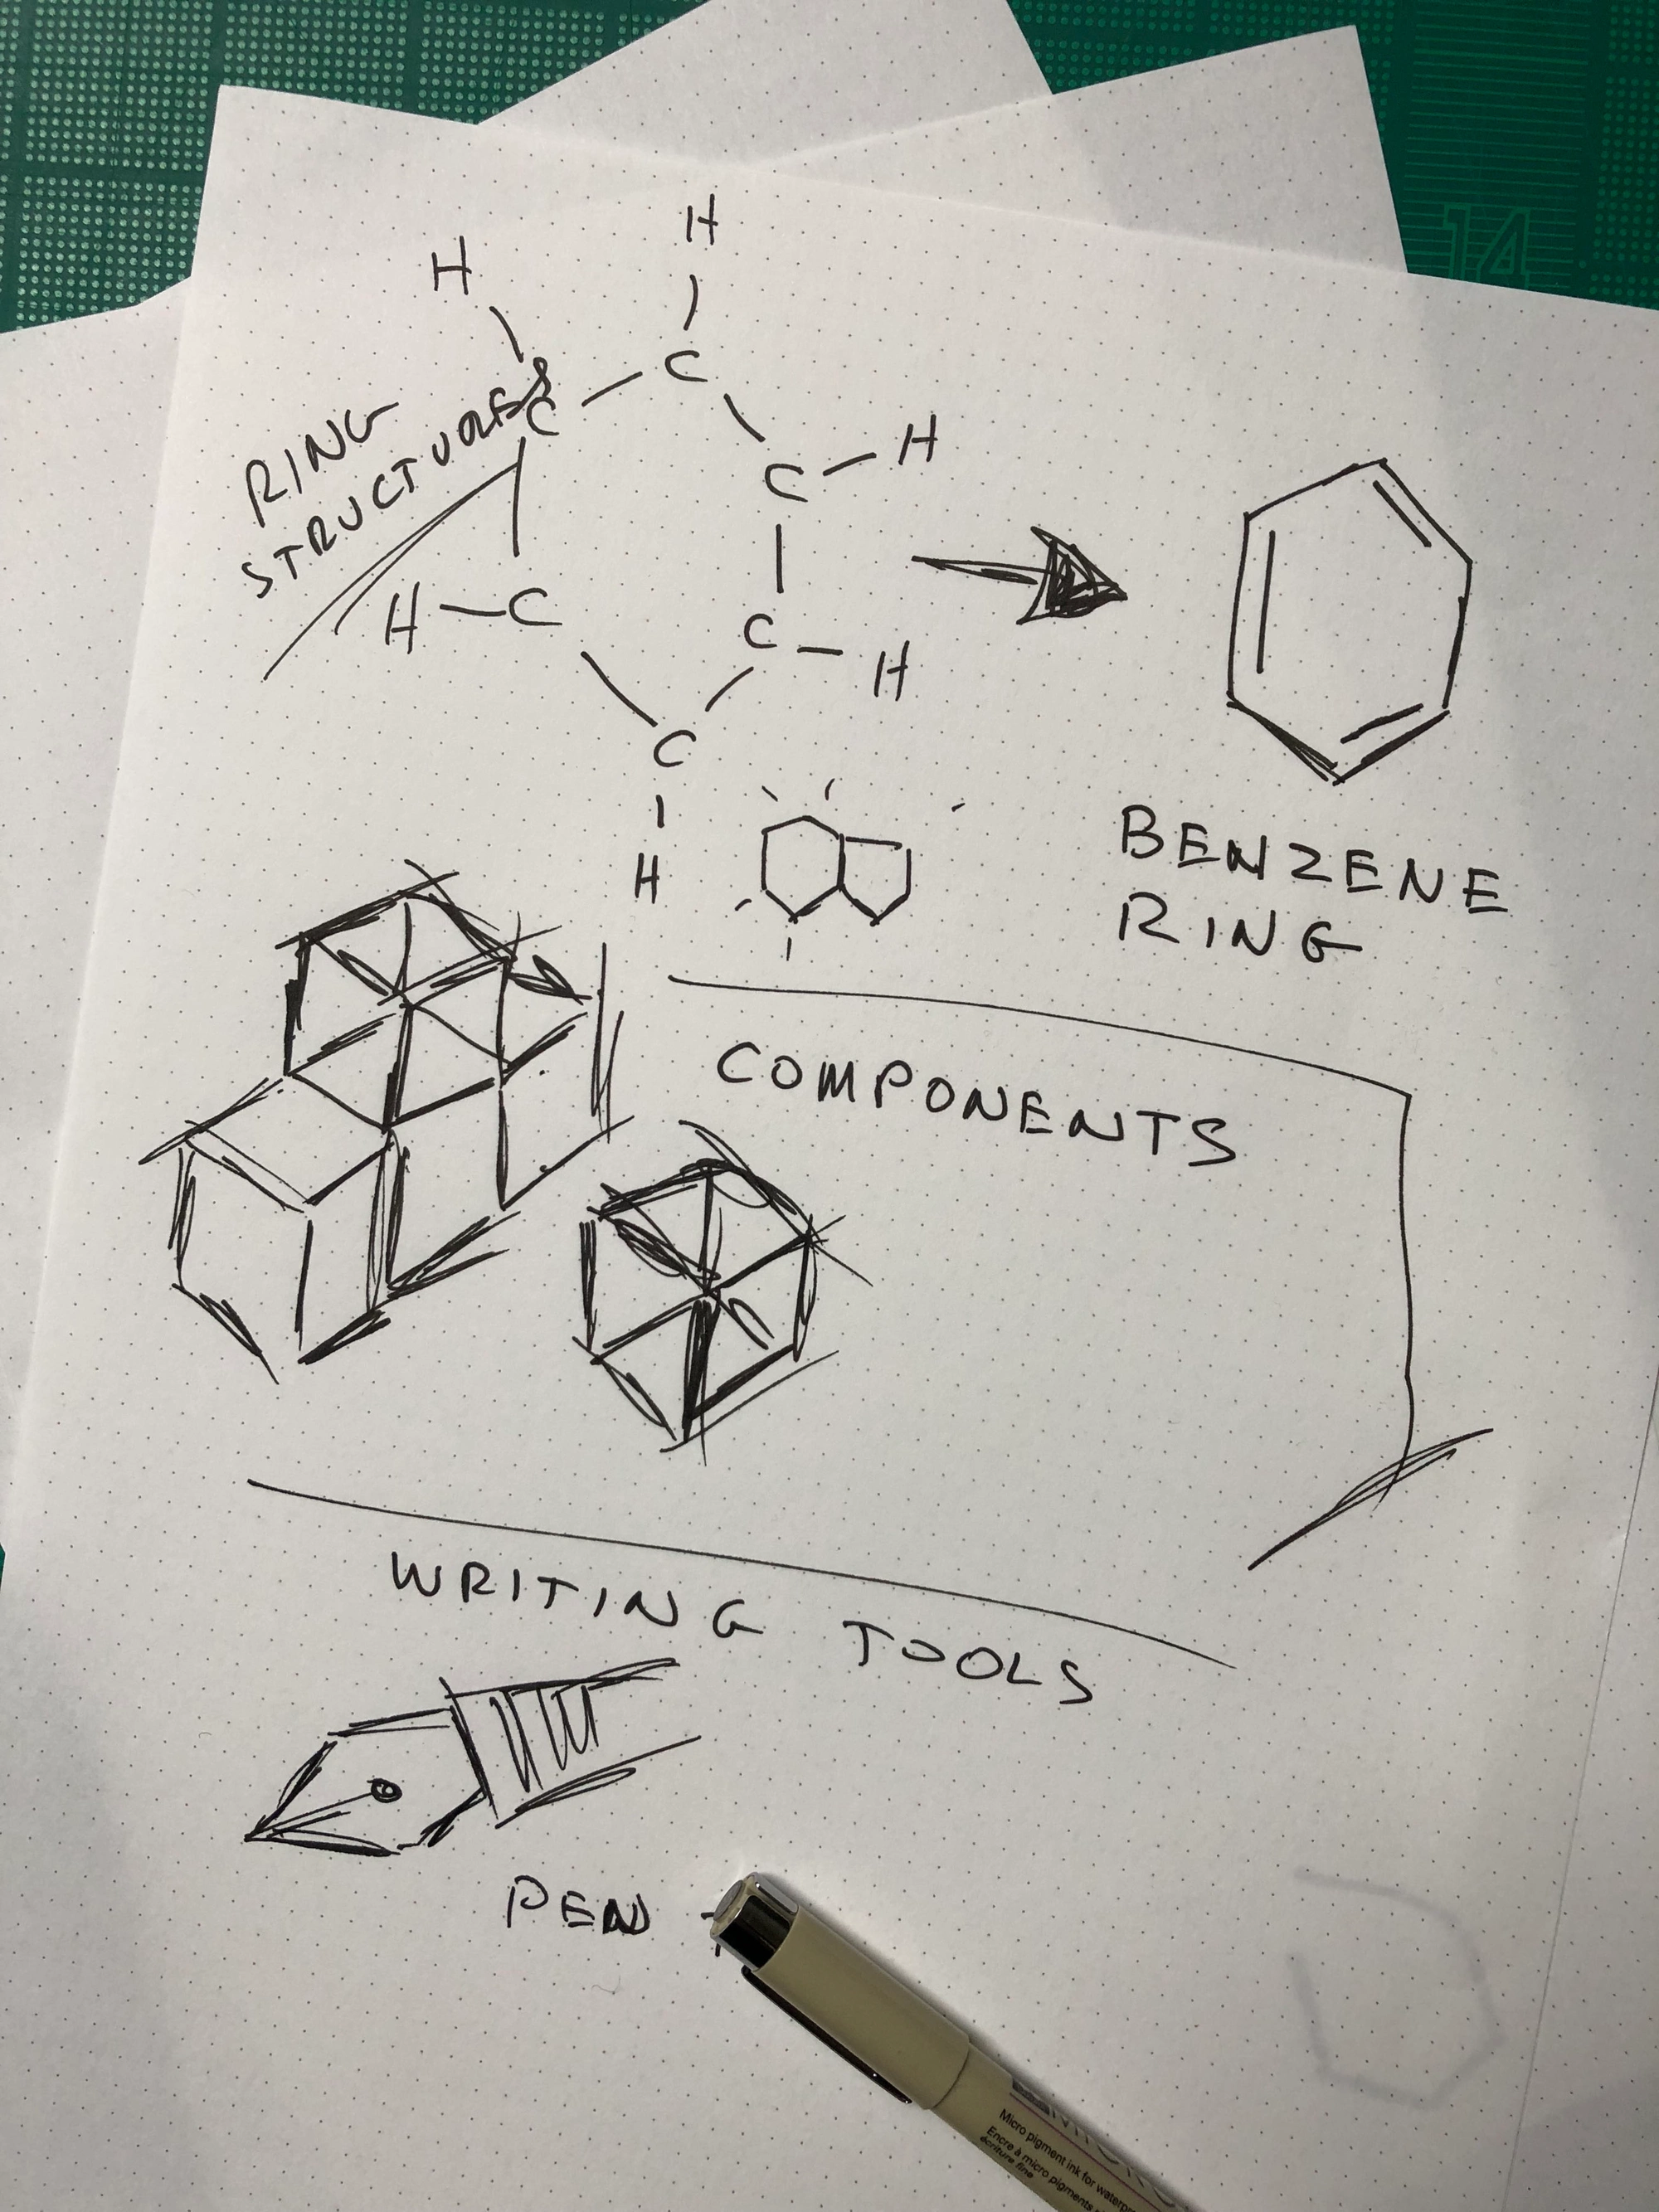 H
H
C
C
RING
STRUCTURES
C
H
H
C
C
H
C
H
BENZENE
RING
COMPONENTS
WRITING TOOLS
PEN
14
Micro pigment ink for waterpr
Encre à micro pigments
écriture fine